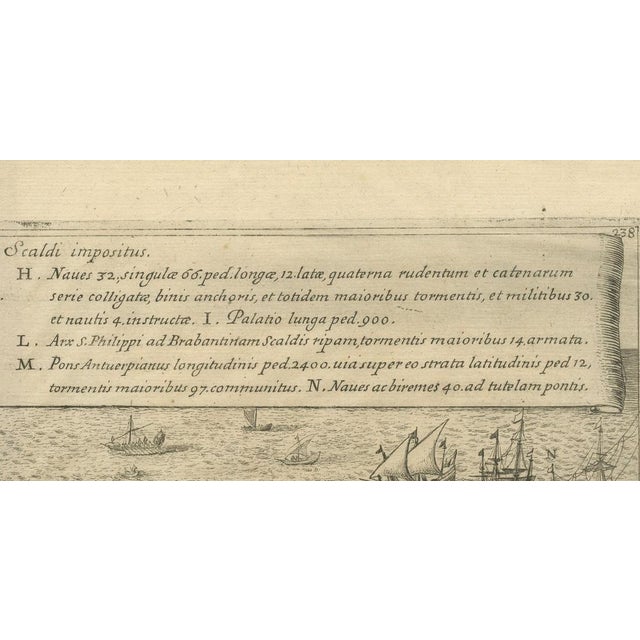 238
Scaldi impositus.
H. Naves 32, singulæ 66. ped. longæ, 12. latæ, quaterna rudentum et catenarum
serie colligatæ, binis anchoris, et totidem maioribus tormentis, et militibus 30.
et nautis 4. instructæ. I. Palatio lunga ped. 900.
L. Arx S. Philippi ad Brabantinam Scaldis ripam, tormentis maioribus 14. armata.
M. Pons Antuerpianus longitudinis ped. 2400. uia super eo strata latitudinis ped 12,
tormentis maioribus 97. communitus. N. Naves ac biremes 40. ad tutelam pontis.
N